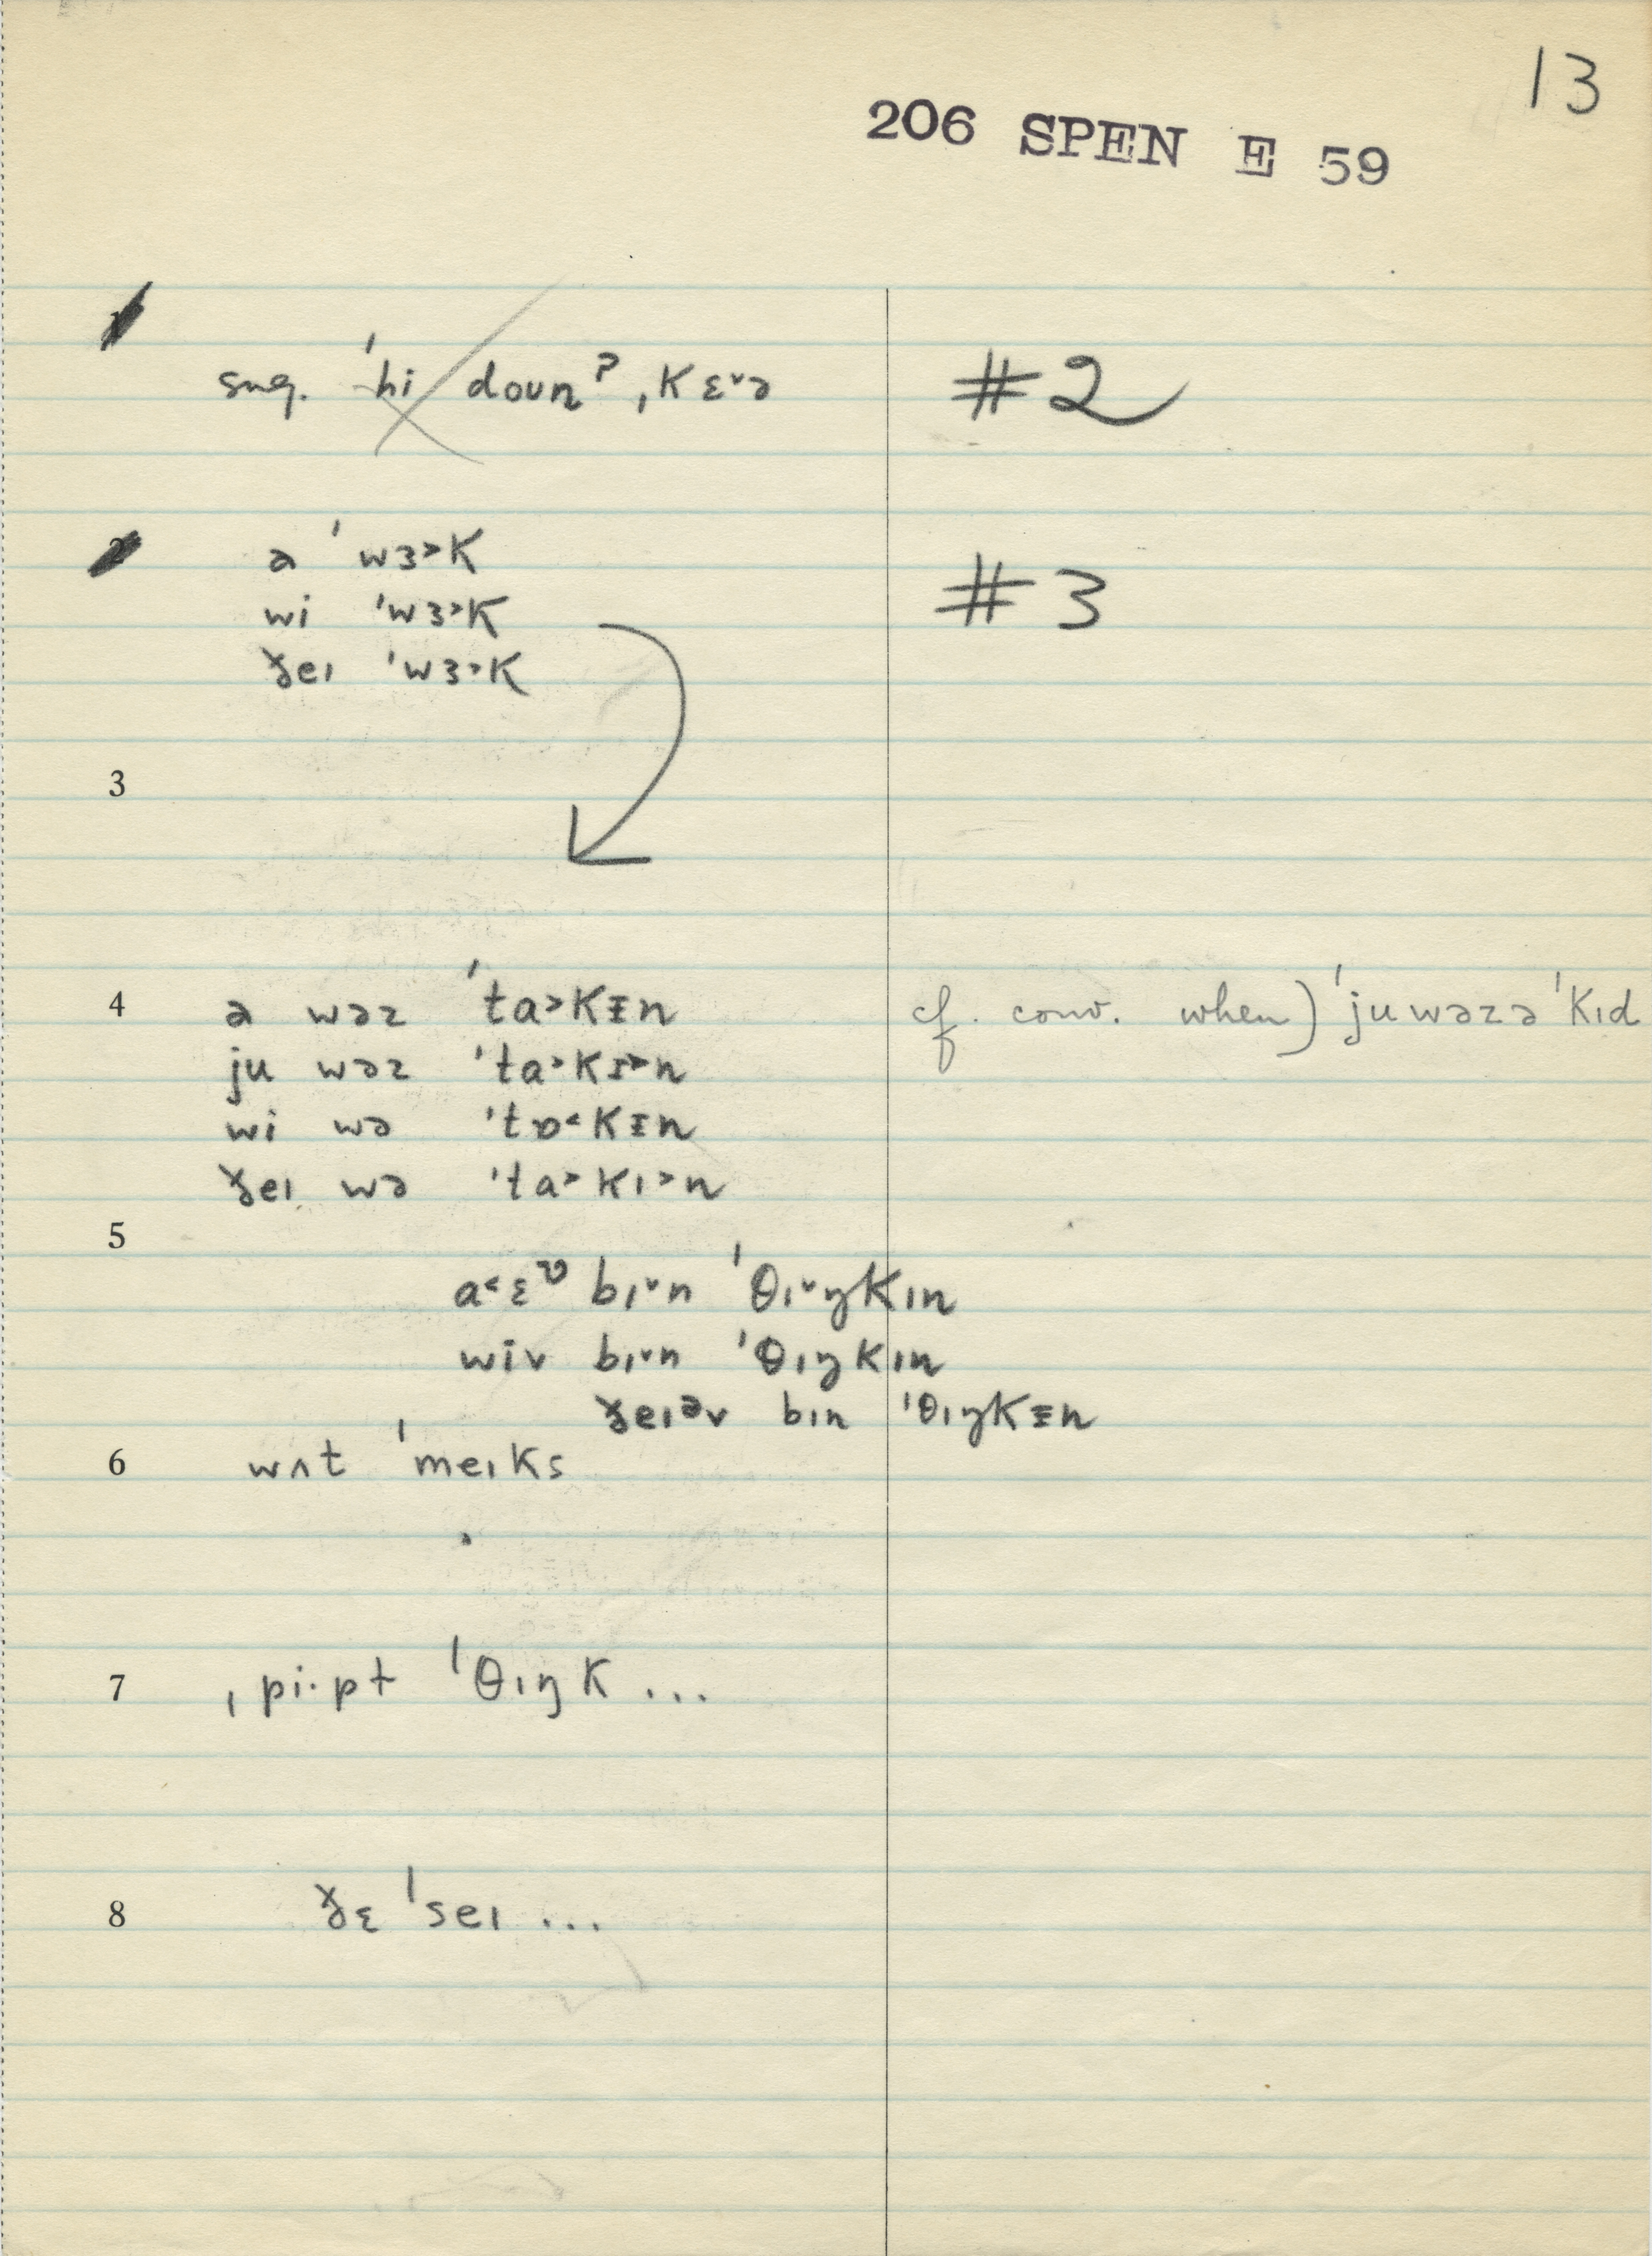 13
206 SPEN E 59
1
sug. ˈhi doʊnˀ ˌkɛ˅ə #2
2 ə ˈwɜ˃k #3
wi ˈwɜ˃k
ðeɪ ˈwɜ˃k
3
4 ə wəz ˈta˃kᵻn cf. conv. when) ˈjuwəzəˈkɪd
ju wəz ˈta˃kɪ˃n
wi wə ˈtɒ˂kᵻn
ðeɪ wə ˈta˃kɪ˃n
5
a˂ɛᶹ bɪ˅n ˈθɪ˅ŋkɪn
wiv bɪ˅n ˈθɪŋkɪn
ðeɪᵊv bɪn ˈθɪŋkᵻn
6 wʌt ˈmeɪks
7 ˌpi·pɫ ˈθɪŋk ...
8 ðɛ ˈseɪ ...